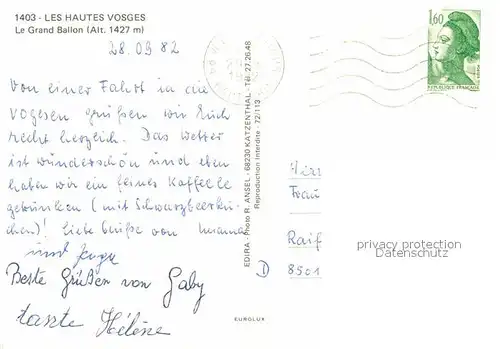 1403 - LES HAUTES VOSGES
Le Grand Ballon (Alt. 1427 m)
28.09 82
Von einer Fahrt in die
Vogesen grüßen wir Euch
recht herzlich. Das Wetter
ist wunderschön und eben
haben wir ein feines Kaffeele
getrunken (mit Schwarzbeerku-
chen)! Liebe Grüße von Mama
und
Beste Grüßen von Gaby
tante Hélène
EDIRA - Photo R. ANSEL - 68230 KATZENTHAL - Tél. 27.26.48
Reproduction Interdite - 72/113
1,60
REPUBLIQUE FRANÇAISE
Frau
Raif
D 8501
privacy protection
Datenschutz
EUROLUX